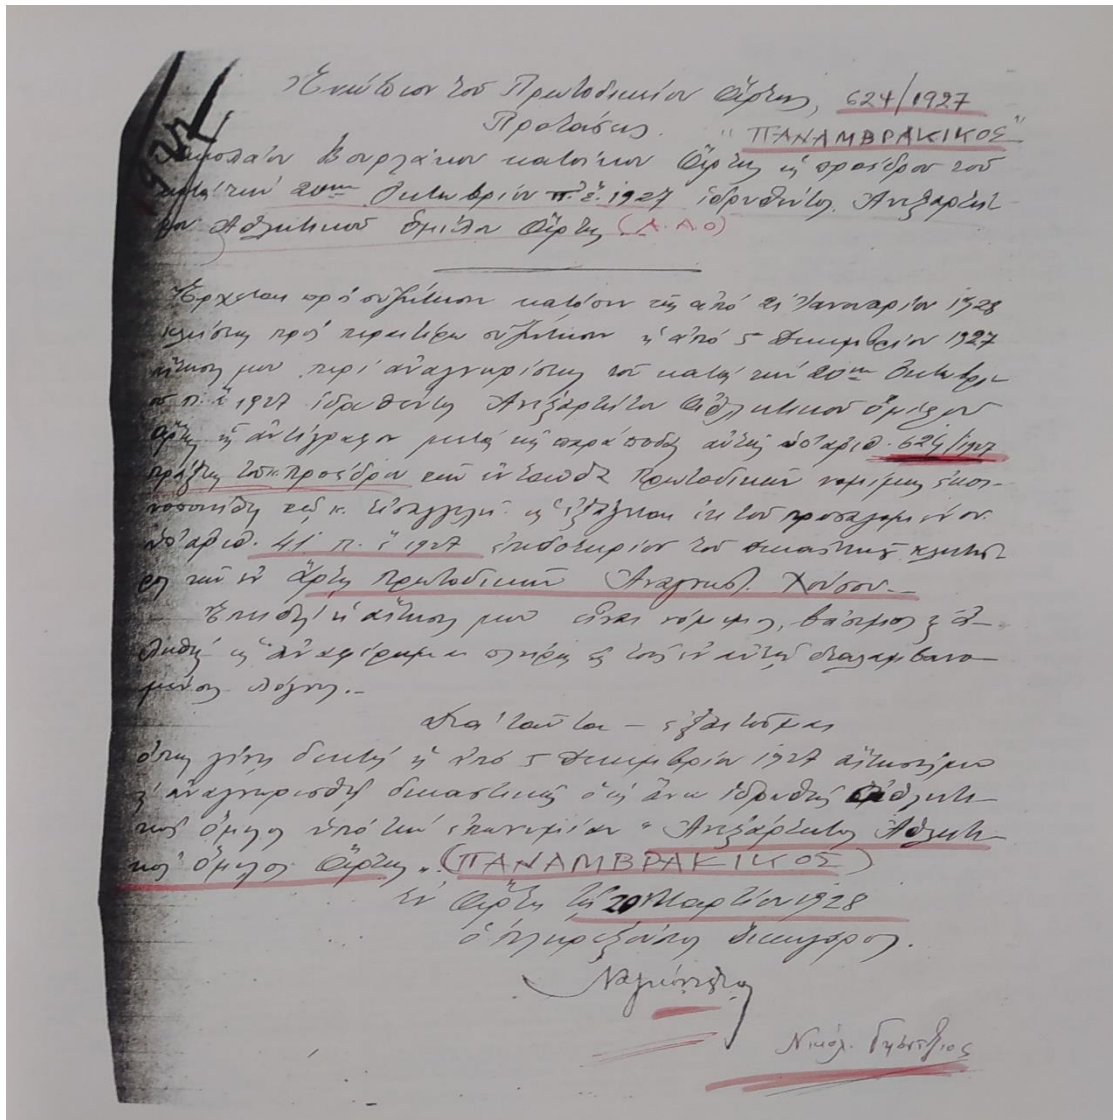 Ἐνώπιον τοῦ Πρωτοδικείου Ἄρτης, 624/1927
Προτάσεις. "ΠΑΝΑΜΒΡΑΚΙΚΟΣ"
Νικολάου Βουρλάκου κατοίκου Ἄρτης ὡς προέδρου τοῦ
κατὰ τὴν 20ην Ὀκτωβρίου π. ἔ. 1927 ἱδρυθέντος Ἀνεξαρτήτ-
του Ἀθλητικοῦ Ὁμίλου Ἄρτης (Α.Α.Ο)
Ἔρχεται πρὸς συζήτησιν κατόπιν τῆς ἀπὸ 21 Ἰανουαρίου 1928
κλήσεως πρὸς περαιτέρω συζήτησιν ἡ ἀπὸ 5 Δεκεμβρίου 1927
αἴτησίς μου περὶ ἀναγνωρίσεως τοῦ κατὰ τὴν 20ην Ὀκτωβρί-
ου π. ἔ 1927 ἱδρυθέντος Ἀνεξαρτήτου Ἀθλητικοῦ ὁμίλου
Ἄρτης ἧς ἀντίγραφον μετὰ τῆς παρὰ πόδας αὐτῆς ὑπ' ἀριθ. 624/1927
πράξεως τοῦ κ. Προέδρου τῶν ἐνταῦθα Πρωτοδικῶν νομίμως ἐκοι-
νοποιήθη τῷ κ. Εἰσαγγελεῖ ὡς ἐξάγεται ἐκ τοῦ προσαγομένου
ὑπ' ἀριθ. 41 π. ἔ 1927 ἀποδεικτηρίου τοῦ δικαστικοῦ κλητῆ-
ρος τῶν ἐν Ἄρτῃ Πρωτοδικῶν Ἀναγνωστ. Χούσου.-
Ἐπειδὴ ἡ αἴτησίς μου εἶναι νόμιμος, βάσιμος & ἀ-
ληθὴς ὡς ἀναφέρομαι πλήρως εἰς τοὺς ἐν αὐτῇ διαλαμβανο-
μένους λόγους.-
Διὰ ταῦτα - ἐξαιτοῦμαι
ὅπως γίνῃ δεκτὴ ἡ ἀπὸ 5 Δεκεμβρίου 1927 αἴτησίς μου
& ἀναγνωρισθῇ δικαστικῶς ὁ ὡς ἄνω ἱδρυθεὶς Ἀθλητι-
κὸς Ὅμιλος ὑπὸ τὴν ἐπωνυμίαν "Ἀνεξάρτητος Ἀθλητι-
κὸς Ὅμιλος Ἄρτης". (ΠΑΝΑΜΒΡΑΚΙΚΟΣ)
Ἐν Ἄρτῃ τῇ 20 Μαρτίου 1928
ὁ Πληρεξούσιος Δικηγόρος.
Νικόλ.